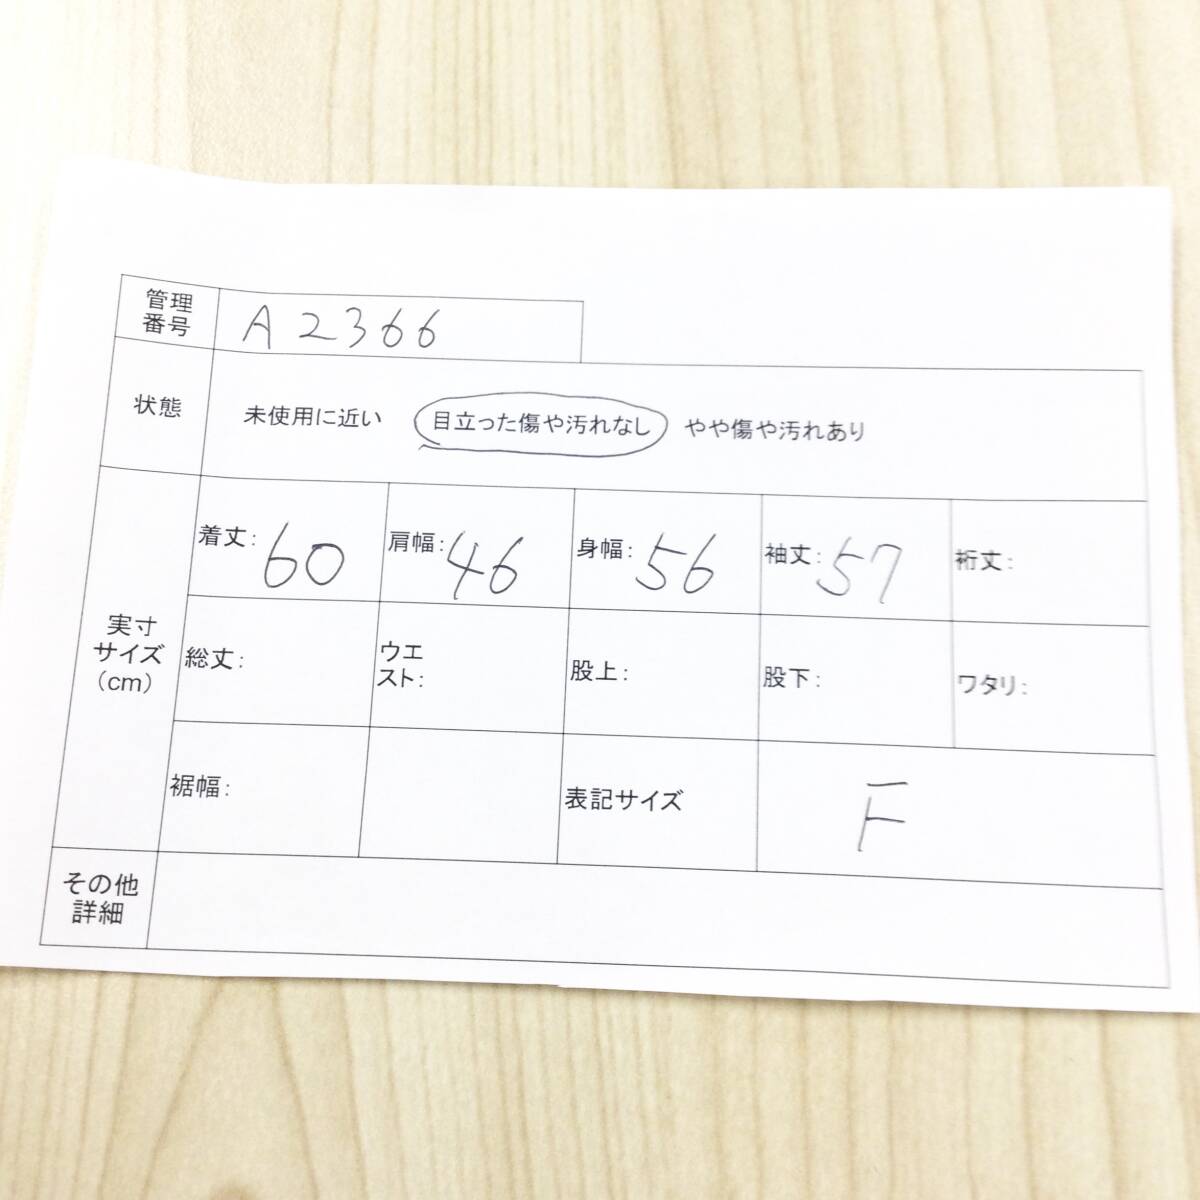 管理
番号
A2366
状態
未使用に近い 目立った傷や汚れなし やや傷や汚れあり
実寸
サイズ
(cm)
着丈: 60
肩幅: 46
身幅: 56
袖丈: 57
裄丈:
総丈:
ウエ
スト:
股上:
股下:
ワタリ:
裾幅:
表記サイズ
F
その他
詳細